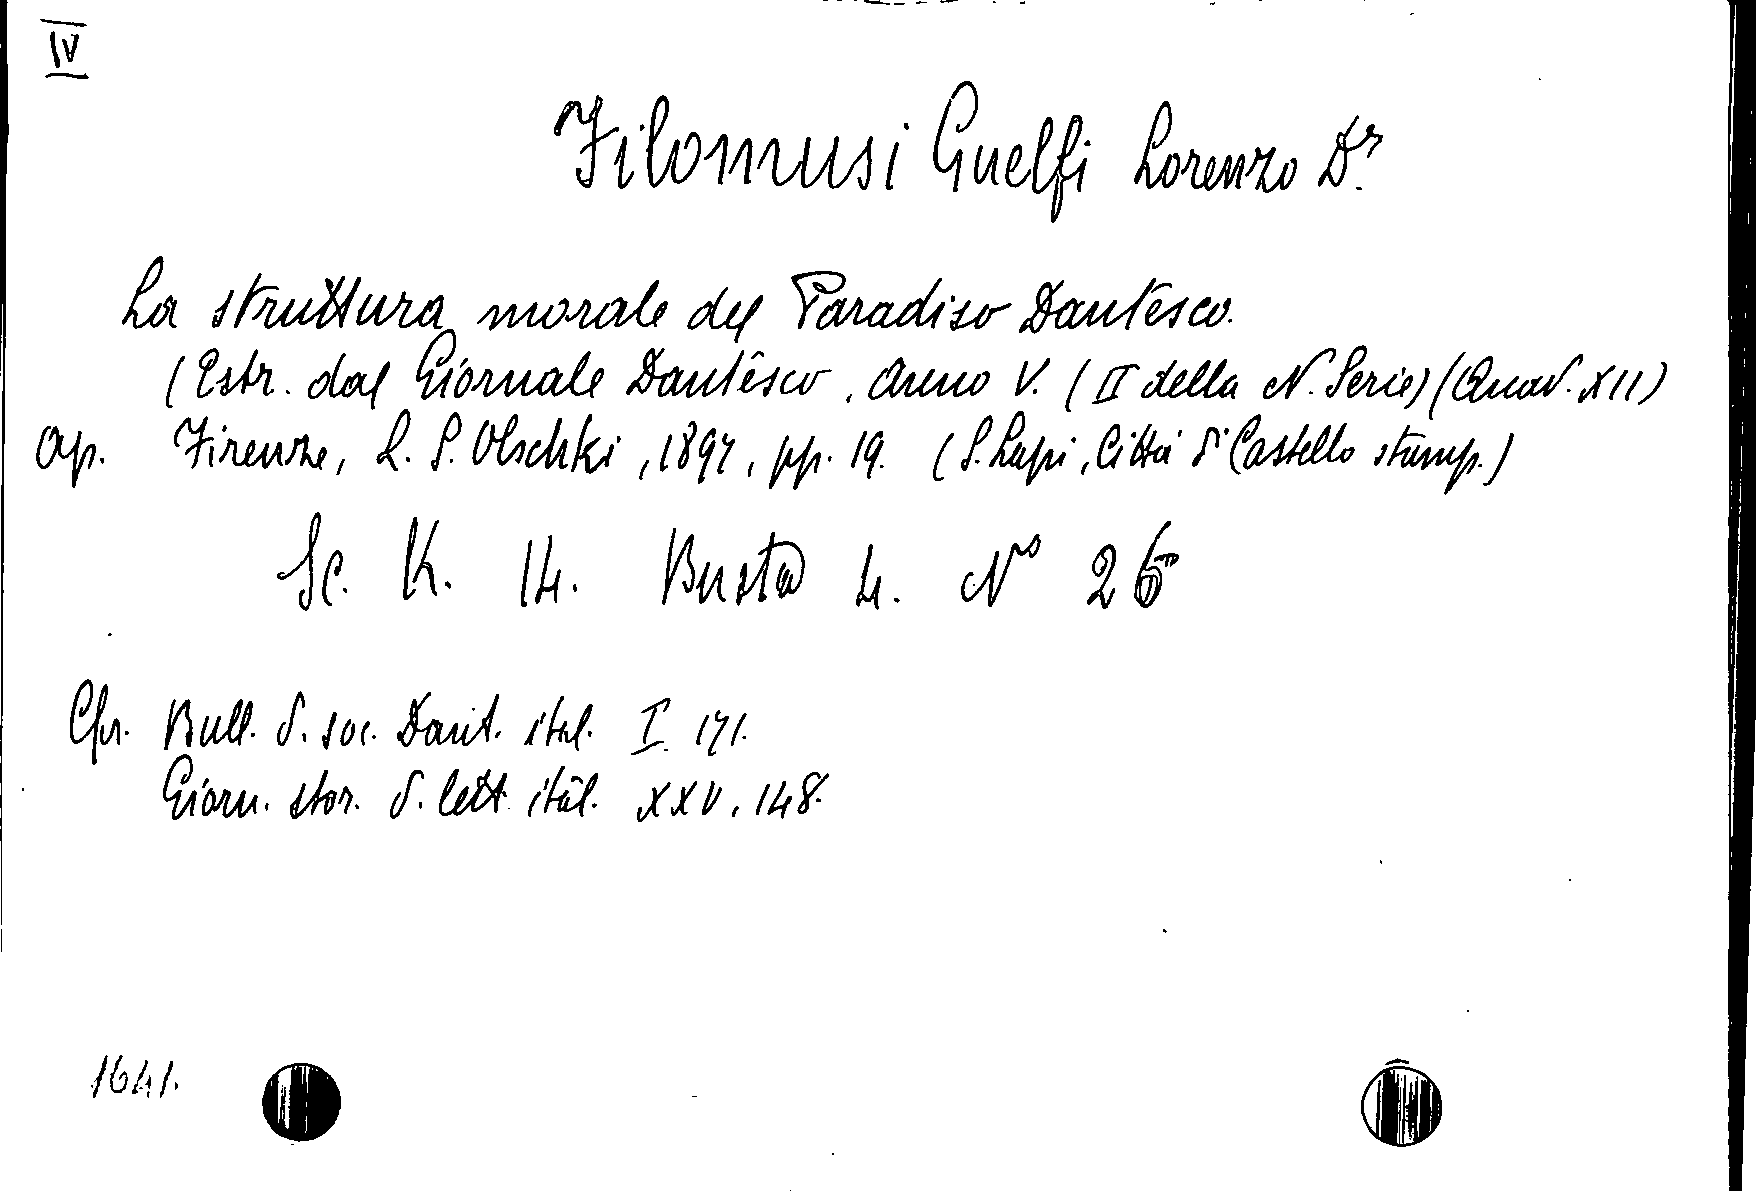 IV
Filomusi Guelfi Lorenzo Dr.
La struttura morale del Paradiso Dantesco.
(Estr. dal Giornale Dantesco, Anno V. (II della N. Serie) (Quad. XII)
Op. Firenze, L. S. Olschki, 1897, pp. 19. (S. Lapi, Città di Castello stamp.)
Sc. K. 14. Busta 4. No 26
Cfr. Bull. d. soc. Dant. ital. I. 171.
Giorn. stor. d. lett. ital. XXV. 148.
1641.